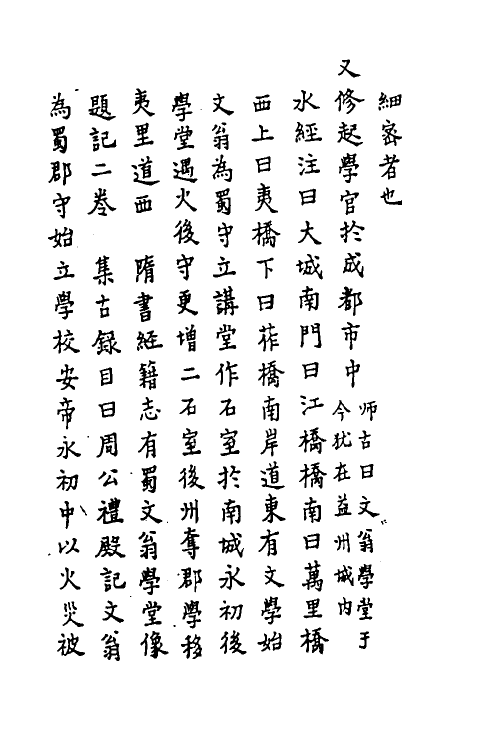 細密者也
又修起學官於成都市中師古曰文翁學堂于
今犹在益州城内
水經注曰大城南門曰江橋橋南曰萬里橋
西上曰夷橋下曰莋橋南岸道東有文學始
文翁為蜀守立講堂作石室於南城永初後
學堂遇火後守更增二石室後州奪郡學移
夷里道西　隋書經籍志有蜀文翁學堂像
題記二卷　集古録目曰周公禮殿記文翁
為蜀郡守始立學校安帝永初中以火災被